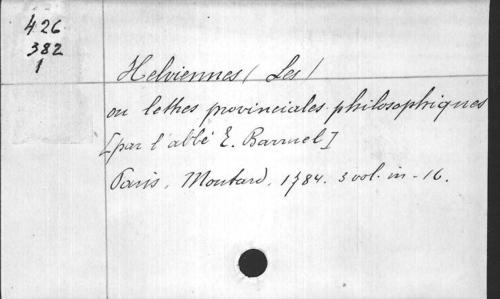 426
382
1
Helviennes (Les)
ou lettres provinciales philosophiques
[par l'abbé E. Barruel]
Paris, Moutard, 1784. 3 vol. in-16.